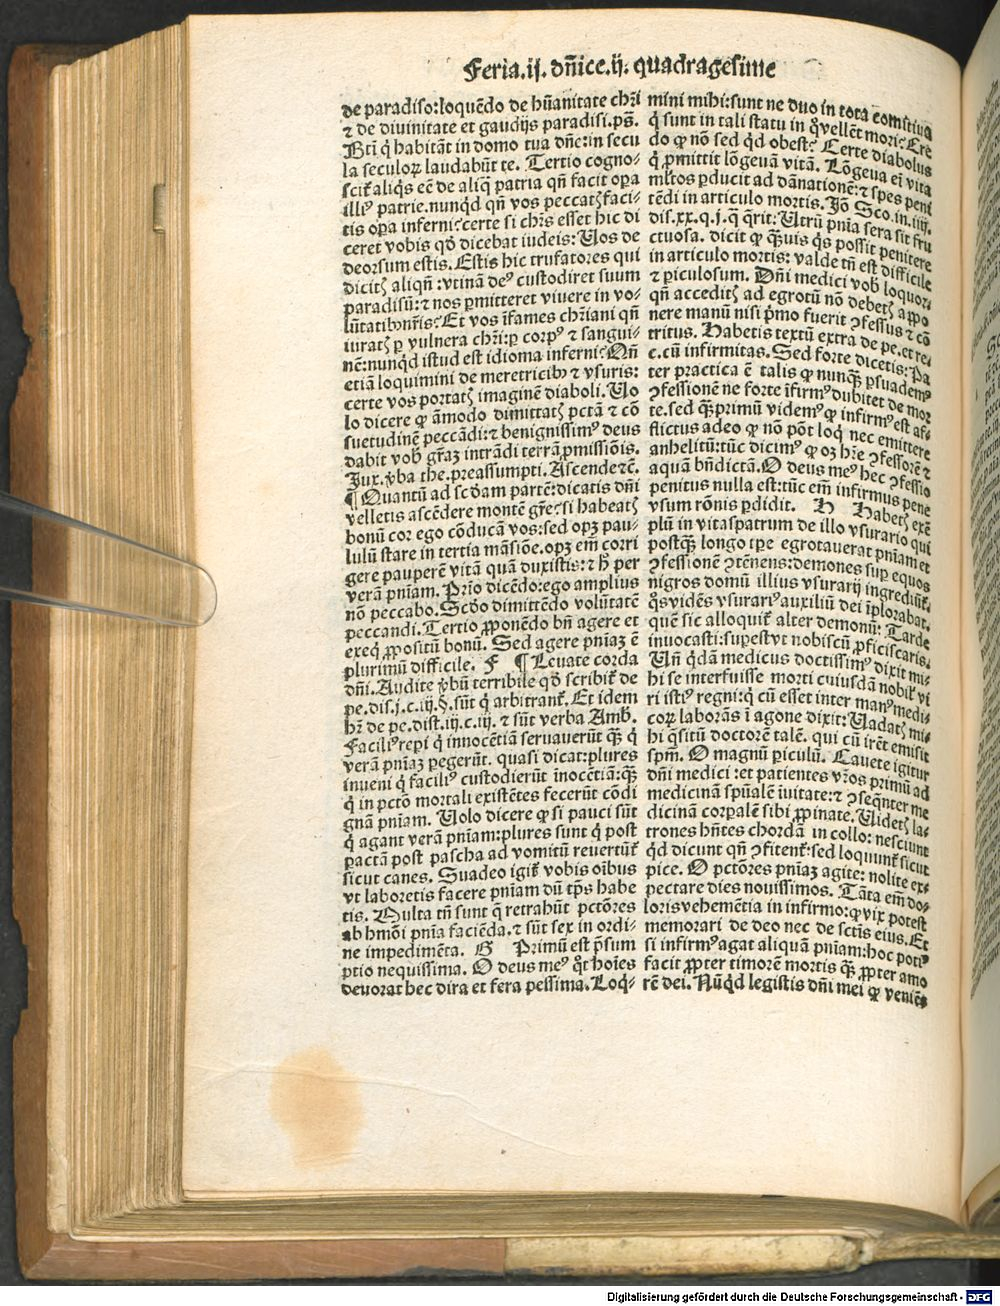 Feria.ij. dñice.ij. quadragesime
de paradiso:loquẽdo de hũanitate chrĩ
⁊ de diuinitate et gaudijs paradisi.ps̃.
Btĩ q̃ habitãt in domo tua dñe:in secu
la seculoꝝ laudabũt te. Tertio cogno-
scit̃ aliq̃s eẽ de aliq̃ patria qñ facit oꝑa
illiꝰ patrie.nunqd̃ qñ vos peccatꝭ faci-
tis oꝑa inferni?certe si chrs̃ esset hic di
ceret vobis qõ dicebat iudeis: Uos de
deorsum estis. Estis hic trufatores qui
dicitꝭ aliqñ :vtinã deꝰ custodiret suum
paradisũ:⁊ nos ꝑmitteret viuere in vo-
lũtatibꝰ nr̃is? Et vos ĩfames chrĩani qñ
iuratꝭ ꝑ vulnera chrĩ:ꝑ corpꝰ ⁊ sangui-
nẽ:nunqd̃ istud est idioma inferni? Qñ
etiã loquimini de meretricibꝰ ⁊ vsuris:
certe vos portatꝭ imaginẽ diaboli. Uo
lo dicere ꝙ ãmodo dimittatꝭ pctã ⁊ cõ
suetudinẽ peccãdi:⁊ benignissimꝰ deus
dabit vob̃ gr̃aꝫ intrãdi terrã ꝓmissiõis.
Jux. v̾ba the. preassumpti. Ascende ⁊c̃.
¶ Quantũ ad sc̃dam partẽ:dicatis dñi
velletis ascẽdere montẽ gr̃e?si habeatꝭ
bonũ cor ego cõducã vos:sed opꝫ pau-
lulũ stare in tertia mãsiõe.opꝫ em̃ corri
gere pauperẽ vitã quã duxistis:⁊ h̾ per
verã pñiam. Prĩo dicẽdo:ego amplius
nõ peccabo. Scd̃o dimittẽdo volũtatẽ
peccandi. Tertio ꝓponẽdo bñ agere et
exeq̃ ꝓpositũ bonũ. Sed agere pñiaꝫ ẽ
plurimũ difficile. F ¶ Leuate corda
dñi. Audite v̾bũ terribile qõ scribit̃ de
pe.dis.j.c.iij.§.sũt q̃ arbitrant̃. Et idem
hr̃ de pe.dist.iij.c.iij. ⁊ sũt verba Amb̃.
Faciliꝰ repi q̃ innocẽtiã seruauerũt q̃ꝫ q̃
verã pñiaꝫ ꝑegerũt. quasi dicat:plures
inueni q̃ faciliꝰ custodierũt inocẽtiã:q̃ꝫ
q̃ in pctõ mortali existẽtes fecerũt cõdi
gnã pñiam. Uolo dicere ꝙ si pauci sũt
q̃ agant verã pñiam:plures sunt q̃ post
ꝑactã post pascha ad vomitũ reuertũt̃
sicut canes. Suadeo igit̃ vobis oĩbus
vt laboretis facere pñiam dũ tp̃s habe
tis. Multa tñ sunt q̃ retrahũt pctõres
ab hmõi pñia faciẽda.⁊ sũt sex in ordi-
ne impedimẽta. G Primũ est p̃sum
ptio nequissima. O deus meꝰ q̃t hoĩes
deuorat hec dira et fera pessima. Loq̃-
mini mihi:sunt ne duo in tota comitiua
q̃ sunt in tali statu in q̃ vellẽt mori? Crẽ
do ꝙ nõ sed qd̃ obest? Certe diabolus
q̃ ꝓmittit lõgeuã vitã. Lõgeua em̃ vita
ml̃tos ꝑducit ad dãnationẽ:⁊ spes peni
tẽdi in articulo mortis. Jo. Sco.in.iiij.
dis.xx.q.j.q̃ q̃rit: Utrũ pñia sera sit fru
ctuosa. dicit ꝙ q̃ꝫuis q̃s possit penitere
in articulo mortis: valde tñ est difficile
⁊ ꝑiculosum. Dñi medici vob̃ loquor:
qñ acceditꝭ ad egrotũ nõ debetꝭ appo
nere manũ nisi p̾mo fuerit ꝯfessus ⁊ cõ
tritus. Habetis textũ extra de pe.et re.
c.cũ infirmitas. Sed forte dicetis: Pa
ter practica ẽ talis ꝙ nunq̃ꝫ ꝑsuademꝰ
ꝯfessionẽ ne forte ĩfirmꝰ dubitet de mor
te.sed q̃ꝫprimũ videmꝰ ꝙ infirmꝰ est af-
flictus adeo ꝙ nõ põt loq̃ nec emittere
anhelitũ:tũc dicimꝰ ꝙ oꝫ hr̃e ꝯfessorẽ ⁊
aquã bñdictã. O deus meꝰ hec ꝯfessio
penitus nulla est:tũc em̃ infirmus pene
vsum rõnis ꝑdidit. H Habetꝭ exẽ
plũ in vitaspatrum de illo vsurario qui
postq̃ꝫ longo tꝑe egrotauerat pñiam et
ꝯfessionẽ ꝯtẽnens:demones suꝑ equos
nigros domũ illius vsurarij ingrediũt̃.
q̃s vidẽs vsurariꝰ auxiliũ dei ĩplorabat.
quẽ sic alloquit̃ alter demonũ: Tarde
inuocasti:supest vt nobiscũ ꝓficiscaris.
Uñ qd̃am medicus doctissimꝰ dixit mi-
hi se interfuisse morti cuiusdã nobil̃ vi
ri istiꝰ regni:q̃ cũ esset inter manꝰ medi-
coꝝ laborãs ĩ agone dixit: Uadatꝭ mi-
hi q̃situ doctorẽ talẽ. qui cũ irẽt emisit
spm̃. O magnũ ꝑiculũ. Cauete igitur
dñi medici :et patientes vr̃os primũ ad
medicinã spũalẽ iuitate:⁊ ꝯseq̃nter me
dicinã corꝑalẽ sibi ꝓpinate. Uidetꝭ la-
trones hñtes chordã in collo: nesciunt
qd̃ dicunt qñ ꝯfitent̃:sed loquunt̃ sicut
pice. O pctõres pñiaꝫ agite: nolite ex-
pectare dies nouissimos. Tãta em̃ do-
loris vehemẽtia in infirmo:ꝙ vix potest
memorari de deo nec de sctĩs eius. Et
si infirmꝰ agat aliquã pñiam:hoc potiꝰ
facit ꝓpter timorẽ mortis q̃ꝫ ꝓpter amo
rẽ dei. Nũqd̃ legistis dñi mei ꝙ veniẽs
Digitalisierung gefördert durch die Deutsche Forschungsgemeinschaft - DFG